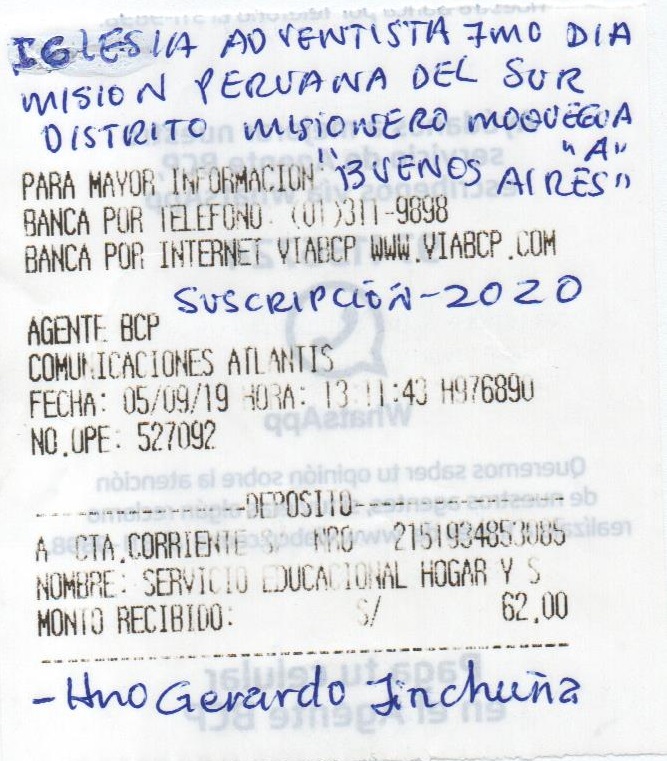 IGLESIA ADVENTISTA 7MO DIA
MISION PERUANA DEL SUR
DISTRITO MISIONERO MOQUEGUA "A"
PARA MAYOR INFORMACION: "BUENOS AIRES"
BANCA POR TELEFONO: (01)311-9898
BANCA POR INTERNET VIABCP WWW.VIABCP.COM
SUSCRIPCIÓN-2020
AGENTE BCP
COMUNICACIONES ATLANTIS
FECHA: 05/09/19 HORA: 13:11:43 H976890
NO.OPE: 527092
DEPOSITO
A CTA.CORRIENTE S/ NRO 2151934853085
NOMBRE: SERVICIO EDUCACIONAL HOGAR Y S
MONTO RECIBIDO: S/ 62.00
-Hno Gerardo Jinchuña
Queremos saber tu opinión sobre la atención
de nuestros agentes,
WhatsApp
Paga tu celular
en el Agente BCP